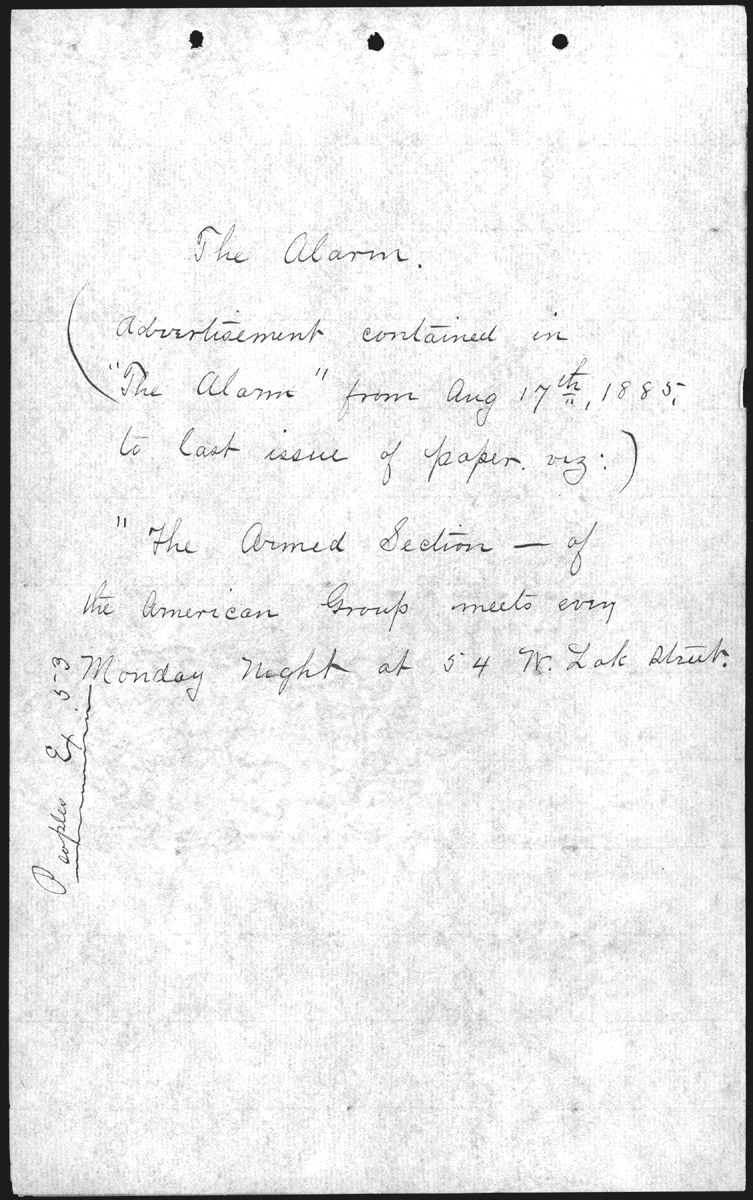 The Alarm.
(Advertisement contained in
"The Alarm" from Aug 17th, 1885,
to last issue of paper. viz:)
" The Armed Section — of
the American Group meets every
Monday Night at 54 W. Lak Street.
Peoples Ex. 53